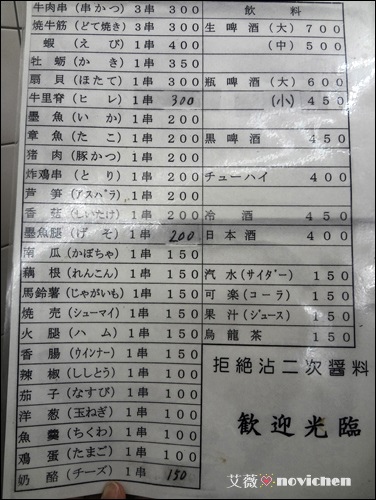 牛肉串(串かつ) 3串 300
焼牛筋(どて焼き) 3串 300
蝦(えび) 1串 400
牡蛎(かき) 1串 350
扇貝(ほたて) 1串 300
牛里脊(ヒレ) 1串 300
墨魚(いか) 1串 200
章魚(たこ) 1串 200
猪肉(豚かつ) 1串 200
炸鶏串(とり) 1串 200
芦笋(アスパラ) 1串 200
香菇(しいたけ) 1串 200
墨魚腿(げそ) 1串 200
南瓜(かぼちゃ) 1串 150
藕根(れんこん) 1串 150
馬鈴薯(じゃがいも) 1串 150
焼売(シューマイ) 1串 150
火腿(ハム) 1串 150
香腸(ウインナー) 1串 150
辣椒(ししとう) 1串 100
茄子(なすび) 1串 100
洋葱(玉ねぎ) 1串 100
魚羹(ちくわ) 1串 100
鶏蛋(たまご) 1串 100
奶酪(チーズ) 1串 150
飲料
生啤酒(大) 700
(中) 500
瓶啤酒(大) 600
(小) 450
黒啤酒 450
チューハイ 400
冷酒 450
日本酒 400
汽水(サイダー) 150
可楽(コーラ) 150
果汁(ジュース) 150
烏龍茶 150
拒絶沾二次醤料
歓迎光臨
艾薇♡novichen